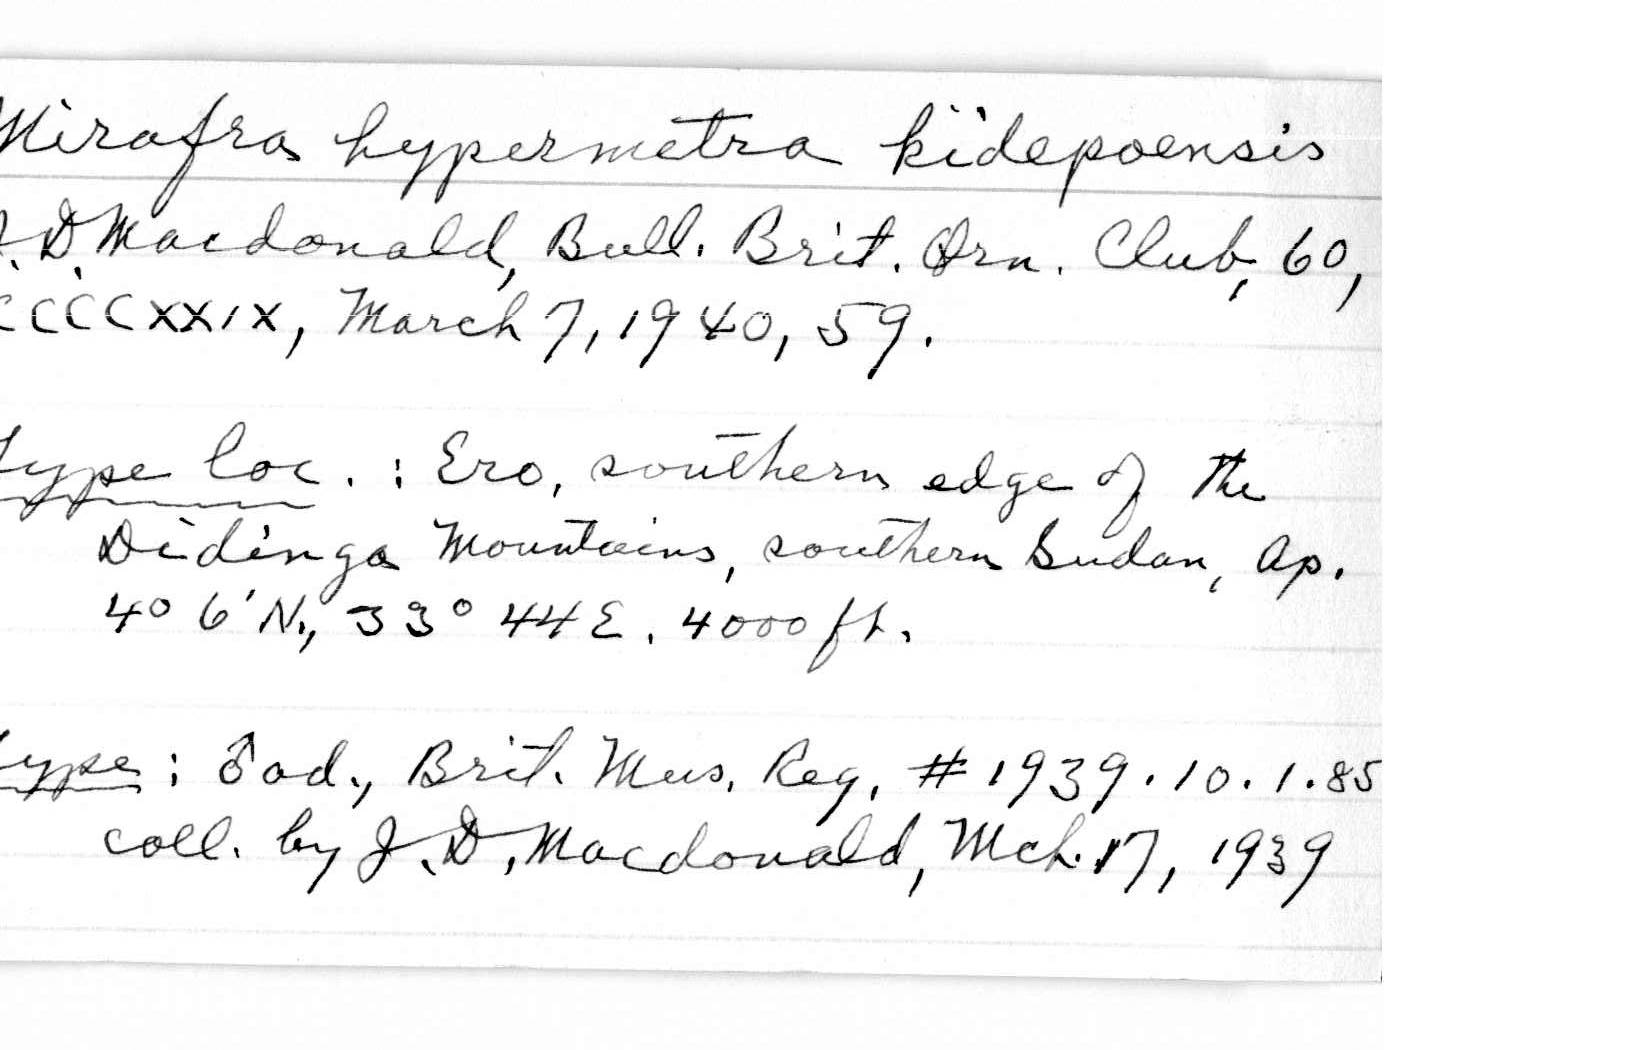 Mirafra hypermetra kidepoensis
J.D. Macdonald, Bull. Brit. Orn. Club, 60,
CCCCXXIX, March 7, 1940, 59.
Type loc. : Ero, southern edge of the
Didinga Mountains, southern Sudan, Ap.
4° 6' N., 33° 44 E. 4000 ft.
Type : ♂ ad., Brit. Mus. Reg. # 1939.10.1.85
coll. by J.D. Macdonald, Mch. 17, 1939